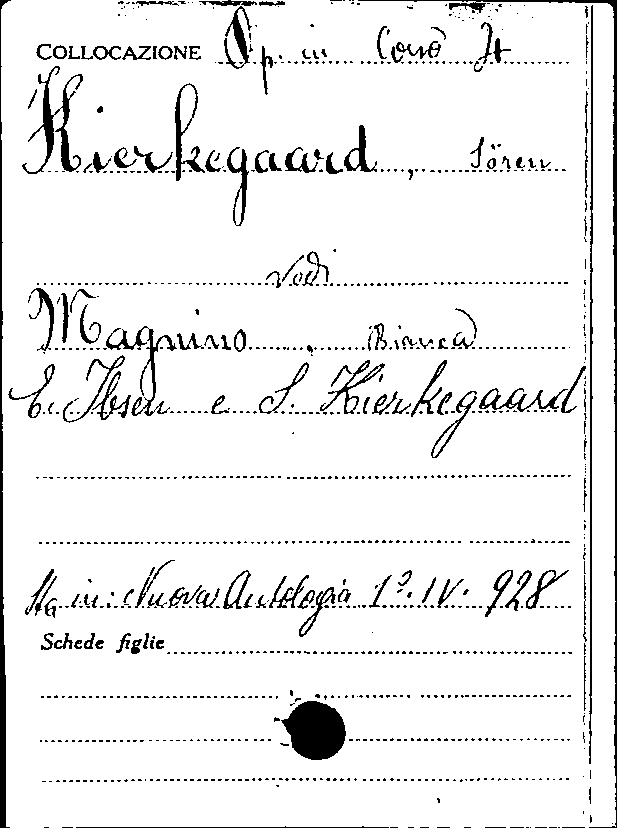 COLLOCAZIONE Op. in Corso It
Kierkegaard, Sören
Vedi
Magnino, Bianca
E. Ibsen e S. Kierkegaard
Sta in: Nuova Antologia 1º. IV. 928
Schede figlie